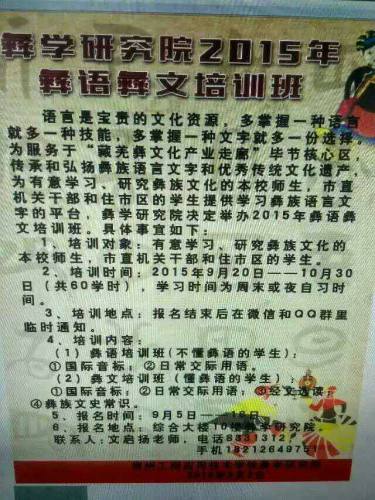 彝学研究院2015年
彝语彝文培训班
语言是宝贵的文化资源，多掌握一种语言
就多一种技能，多掌握一种文字就多一份选择。
为服务于“藏羌彝文化产业走廊”毕节核心区，
传承和弘扬彝族语言文字和优秀传统文化遗产，
为有意学习、研究彝族文化的本校师生，市直
机关干部和住市区的学生提供学习彝族语言文
字的平台，彝学研究院决定举办2015年彝语彝
文培训班。具体事宜如下：
1、培训对象：有意学习、研究彝族文化的
本校师生，市直机关干部和住市区的学生。
2、培训时间：2015年9月20日——10月30
日（共60学时），学习时间为周末或夜自习时
间。
3、培训地点：报名结束后在微信和QQ群里
临时通知。
4、培训内容：
（1）彝语培训班(不懂彝语的学生)：
①国际音标；②日常交际用语。
（2）彝文培训班（懂彝语的学生）：
①国际音标；②日常交际用语；③经文选读；
④彝族文史常识。
5、报名时间：9月5日——18日
6、报名地点：综合大楼10楼彝学研究院。
联系人：文启扬老师，电话8331312，
手机18212649751